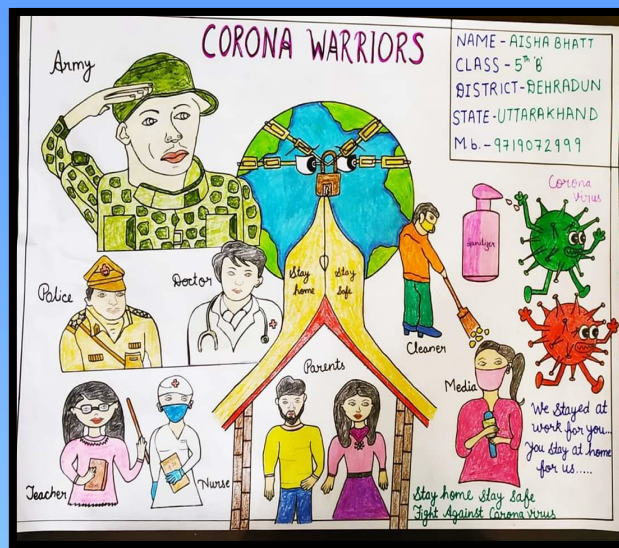 CORONA WARRIORS
NAME - AISHA BHATT
CLASS - 5th 'B'
DISTRICT - DEHRADUN
STATE - UTTARAKHAND
Mb. - 9719072999
Army
Corona
Virus
Sanitizer
Police
Doctor
Stay
home
Stay
Safe
Cleaner
Parents
Media
We stayed at
work for you...
You stay at home
for us.....
Teacher
Nurse
Stay home Stay Safe
Fight Against Carona virus